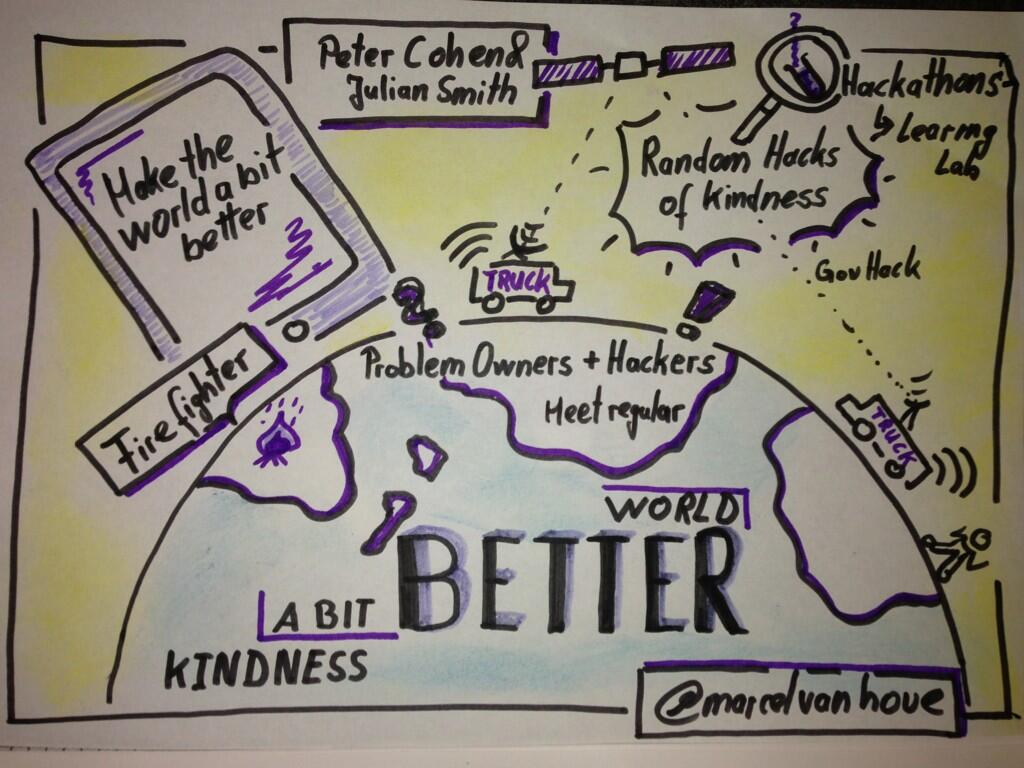 Peter Cohen &
Julian Smith
Make the
world a bit
better
Hackathons
Learning
Lab
Random Hacks
of Kindness
GovHack
TRUCK
Firefighter
Problem Owners + Hackers
Meet regular
TRUCK
WORLD
BETTER
A BIT
KINDNESS
@marcelvanhove